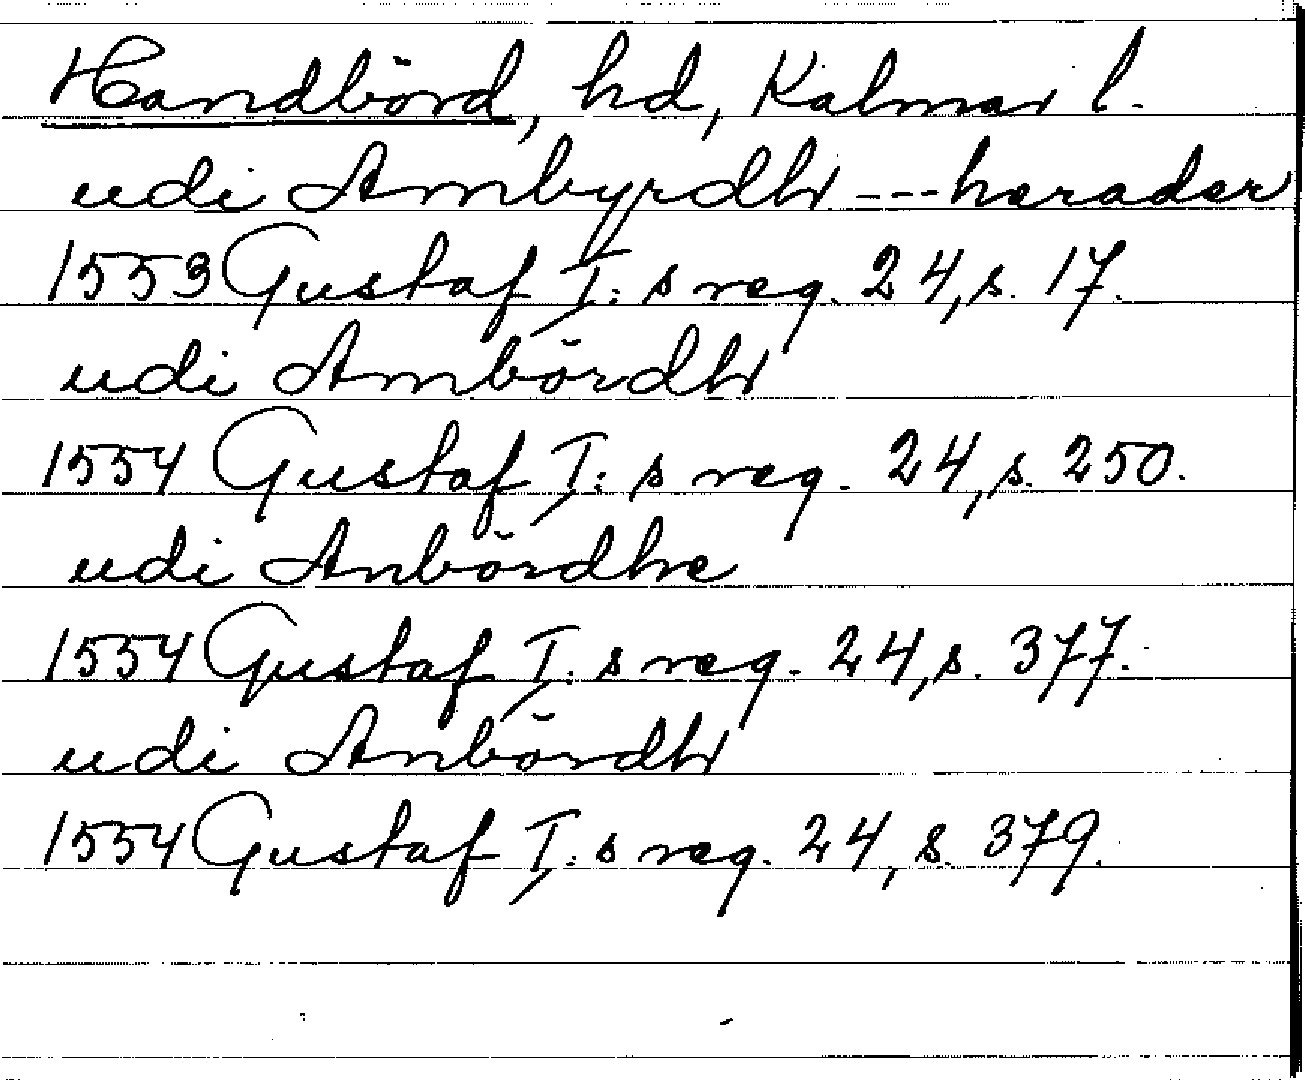 Handbörd, hd, Kalmar l.
udi Ambyrdh --- herader
1553 Gustaf I:s reg. 24, s. 17.
udi Ambördh
1554 Gustaf I:s reg. 24, s. 250.
udi Anbördhe
1554 Gustaf I:s reg. 24, s. 377.
udi Anbördh
1554 Gustaf I:s reg. 24, s. 379.